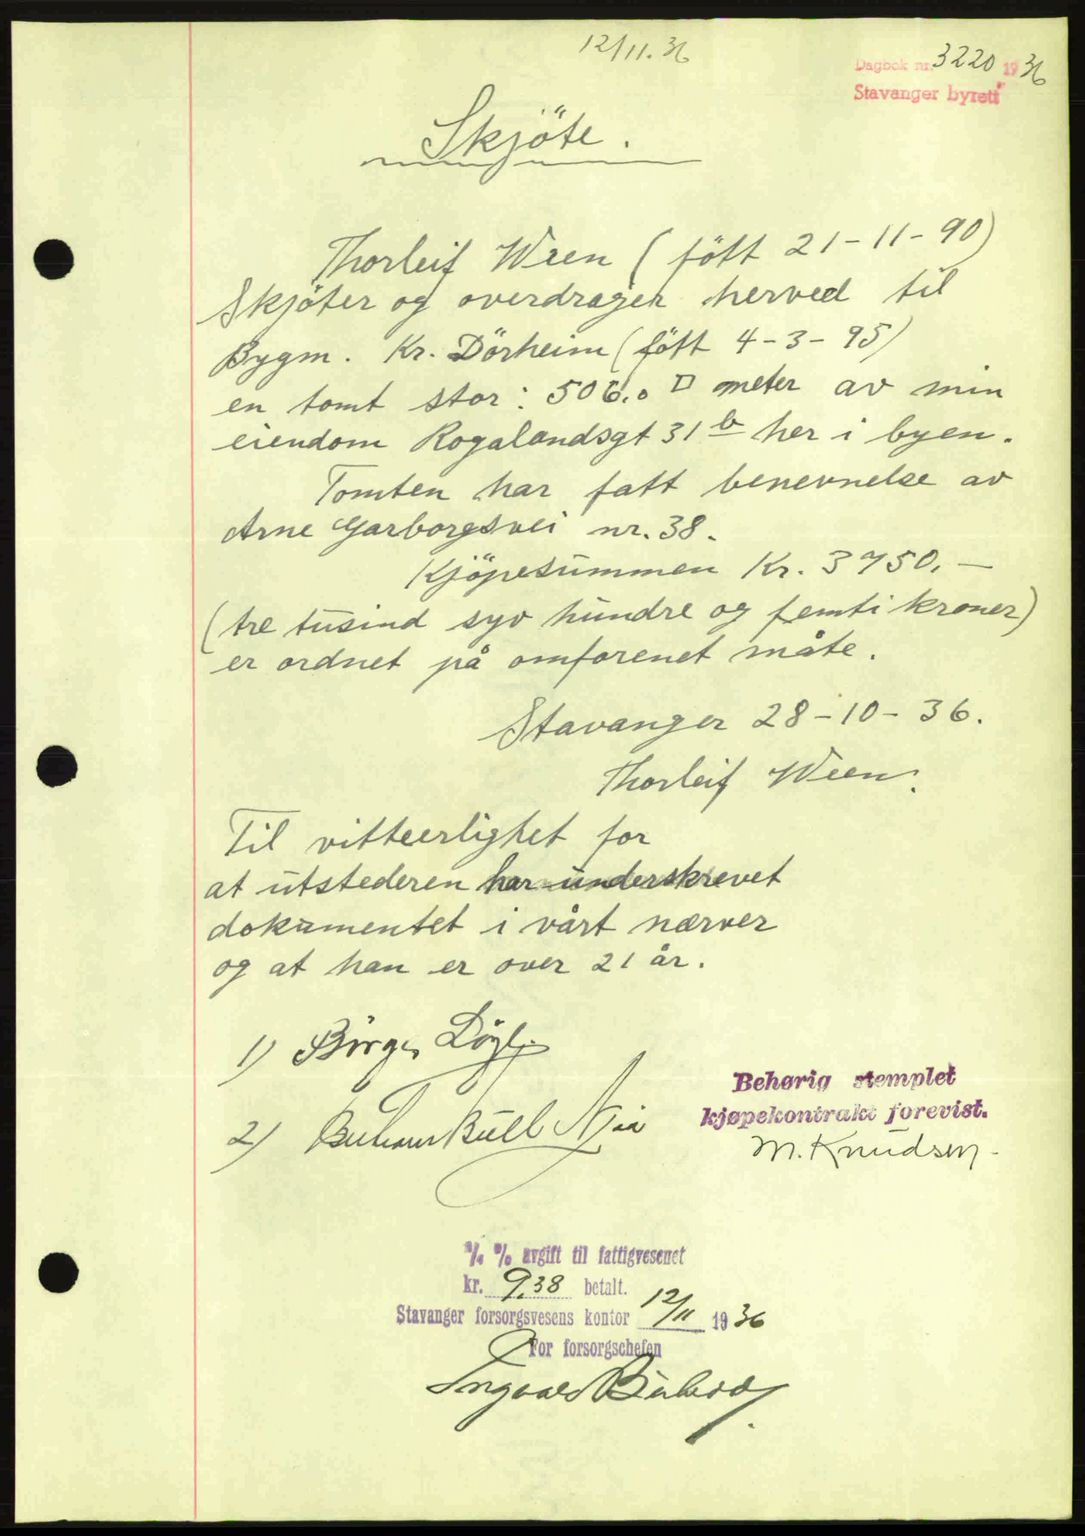 12/11.36
Dagbok nr. 3220 1936
Stavanger byrett
Skjöte.
Thorleif Ween (født 21-11-90)
Skjöter og overdrager herved til
Bygm. Kr. Dörheim (född 4-3-95)
en tomt stor: 506.0 □ meter av min
eiendom Rogalandsgt 31 b her i byen.
Tomten har fatt benevnelse av
Arne Garborgsvei nr. 38.
Kjöpesummen Kr. 3750.—
(tre tusind syv hundre og femti kroner)
er ordnet på omforenet måte.
Stavanger 28-10-36.
Thorleif Ween.
Til vitteerlighet for
at utstederen har underskrevet
dokumentet i vårt nærver
og at han er over 21 år.
1) Börge
2) Bull
Behørig stemplet
kjøpekontrakt forevist.
M. Knudsen
1/4 % avgift til fattigvesenet
kr. 9.38 betalt.
Stavanger forsorgsvesens kontor 12/11 1936
For forsorgschefen